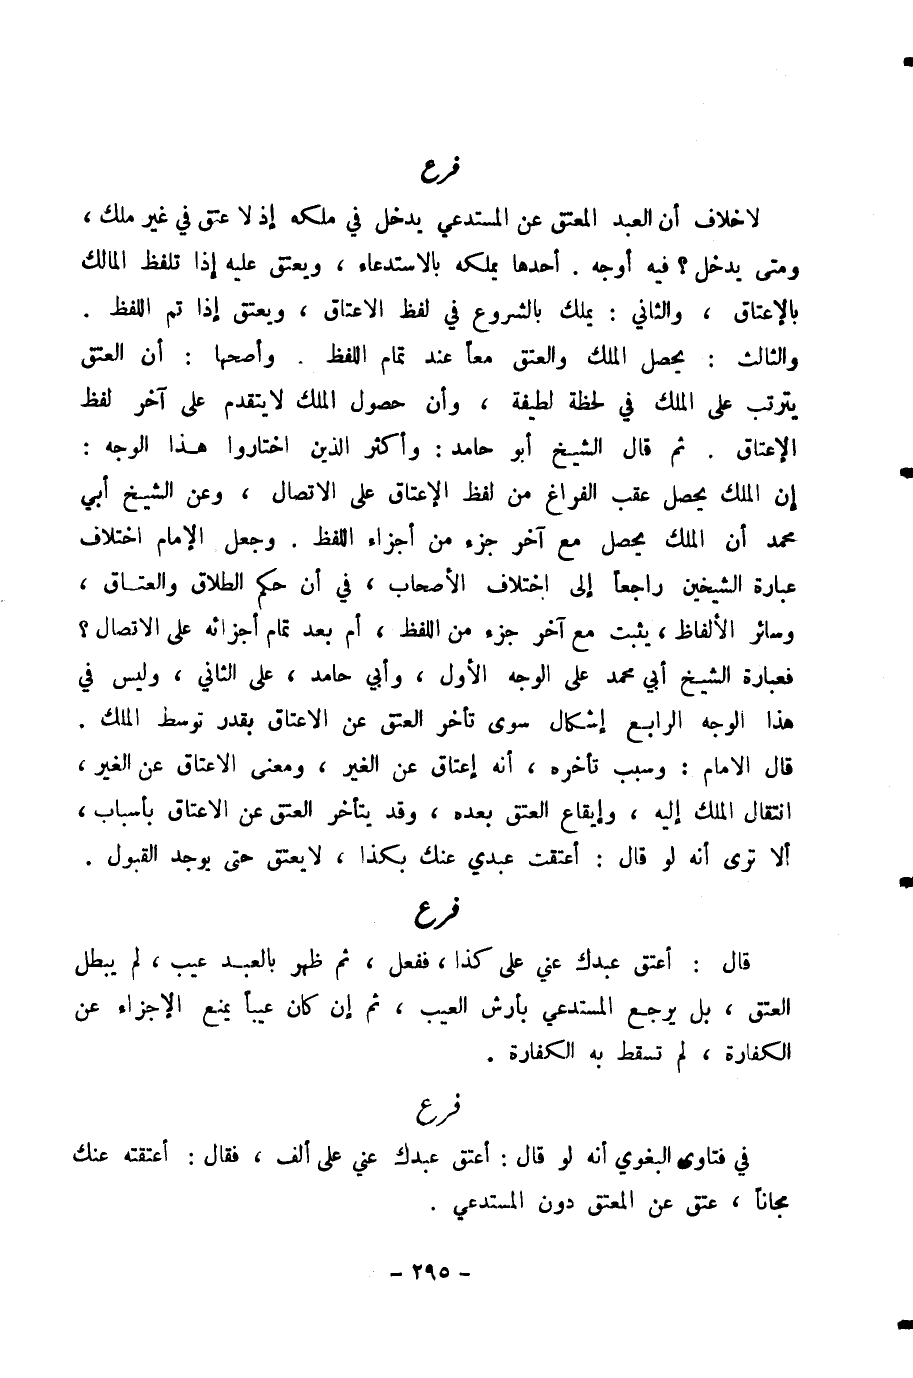 فرع
لا خلاف أن العبد المعتق عن المستدعي يدخل في ملكه إذ لا عتق في غير ملك ،
ومتى يدخل ؟ فيه أوجه . أحدها يملكه بالاستدعاء ، ويعتق عليه إذا تلفظ المالك
بالإعتاق ، والثاني : يملك بالشروع في لفظ الاعتاق ، ويعتق إذا تم اللفظ .
والثالث : يحصل الملك والعتق معاً عند تمام اللفظ . وأصحها : أن العتق
يترتب على الملك في لحظة لطيفة ، وأن حصول الملك لا يتقدم على آخر لفظ
الإعتاق . ثم قال الشيخ أبو حامد : وأكثر الذين اختاروا هذا الوجه :
إن الملك يحصل عقب الفراغ من لفظ الإعتاق على الاتصال ، وعن الشيخ أبي
محمد أن الملك يحصل مع آخر جزء من أجزاء اللفظ . وجعل الإمام اختلاف
عبارة الشيخين راجعاً إلى اختلاف الأصحاب ، في أن حكم الطلاق والعتاق ،
وسائر الألفاظ ، يثبت مع آخر جزء من اللفظ ، أم بعد تمام أجزائه على الاتصال ؟
فعبارة الشيخ أبي محمد على الوجه الأول ، وأبي حامد ، على الثاني ، وليس في
هذا الوجه الرابع إشكال سوى تأخر العتق عن الاعتاق بقدر توسط الملك .
قال الامام : وسبب تأخره ، أنه إعتاق عن الغير ، ومعنى الاعتاق عن الغير ،
انتقال الملك إليه ، وإيقاع العتق بعده ، وقد يتأخر العتق عن الاعتاق بأسباب ،
ألا ترى أنه لو قال : أعتقت عبدي عنك بكذا ، لا يعتق حتى يوجد القبول .
فرع
قال : أعتق عبدك عني على كذا ، ففعل ، ثم ظهر بالعبد عيب ، لم يبطل
العتق ، بل يرجع المستدعي بأرش العيب ، ثم إن كان عيباً يمنع الإجزاء عن
الكفارة ، لم تسقط به الكفارة .
فرع
في فتاوى البغوي أنه لو قال : أعتق عبدك عني على ألف ، فقال : أعتقته عنك
مجاناً ، عتق عن المعتق دون المستدعي .
- ٢٩٥ -